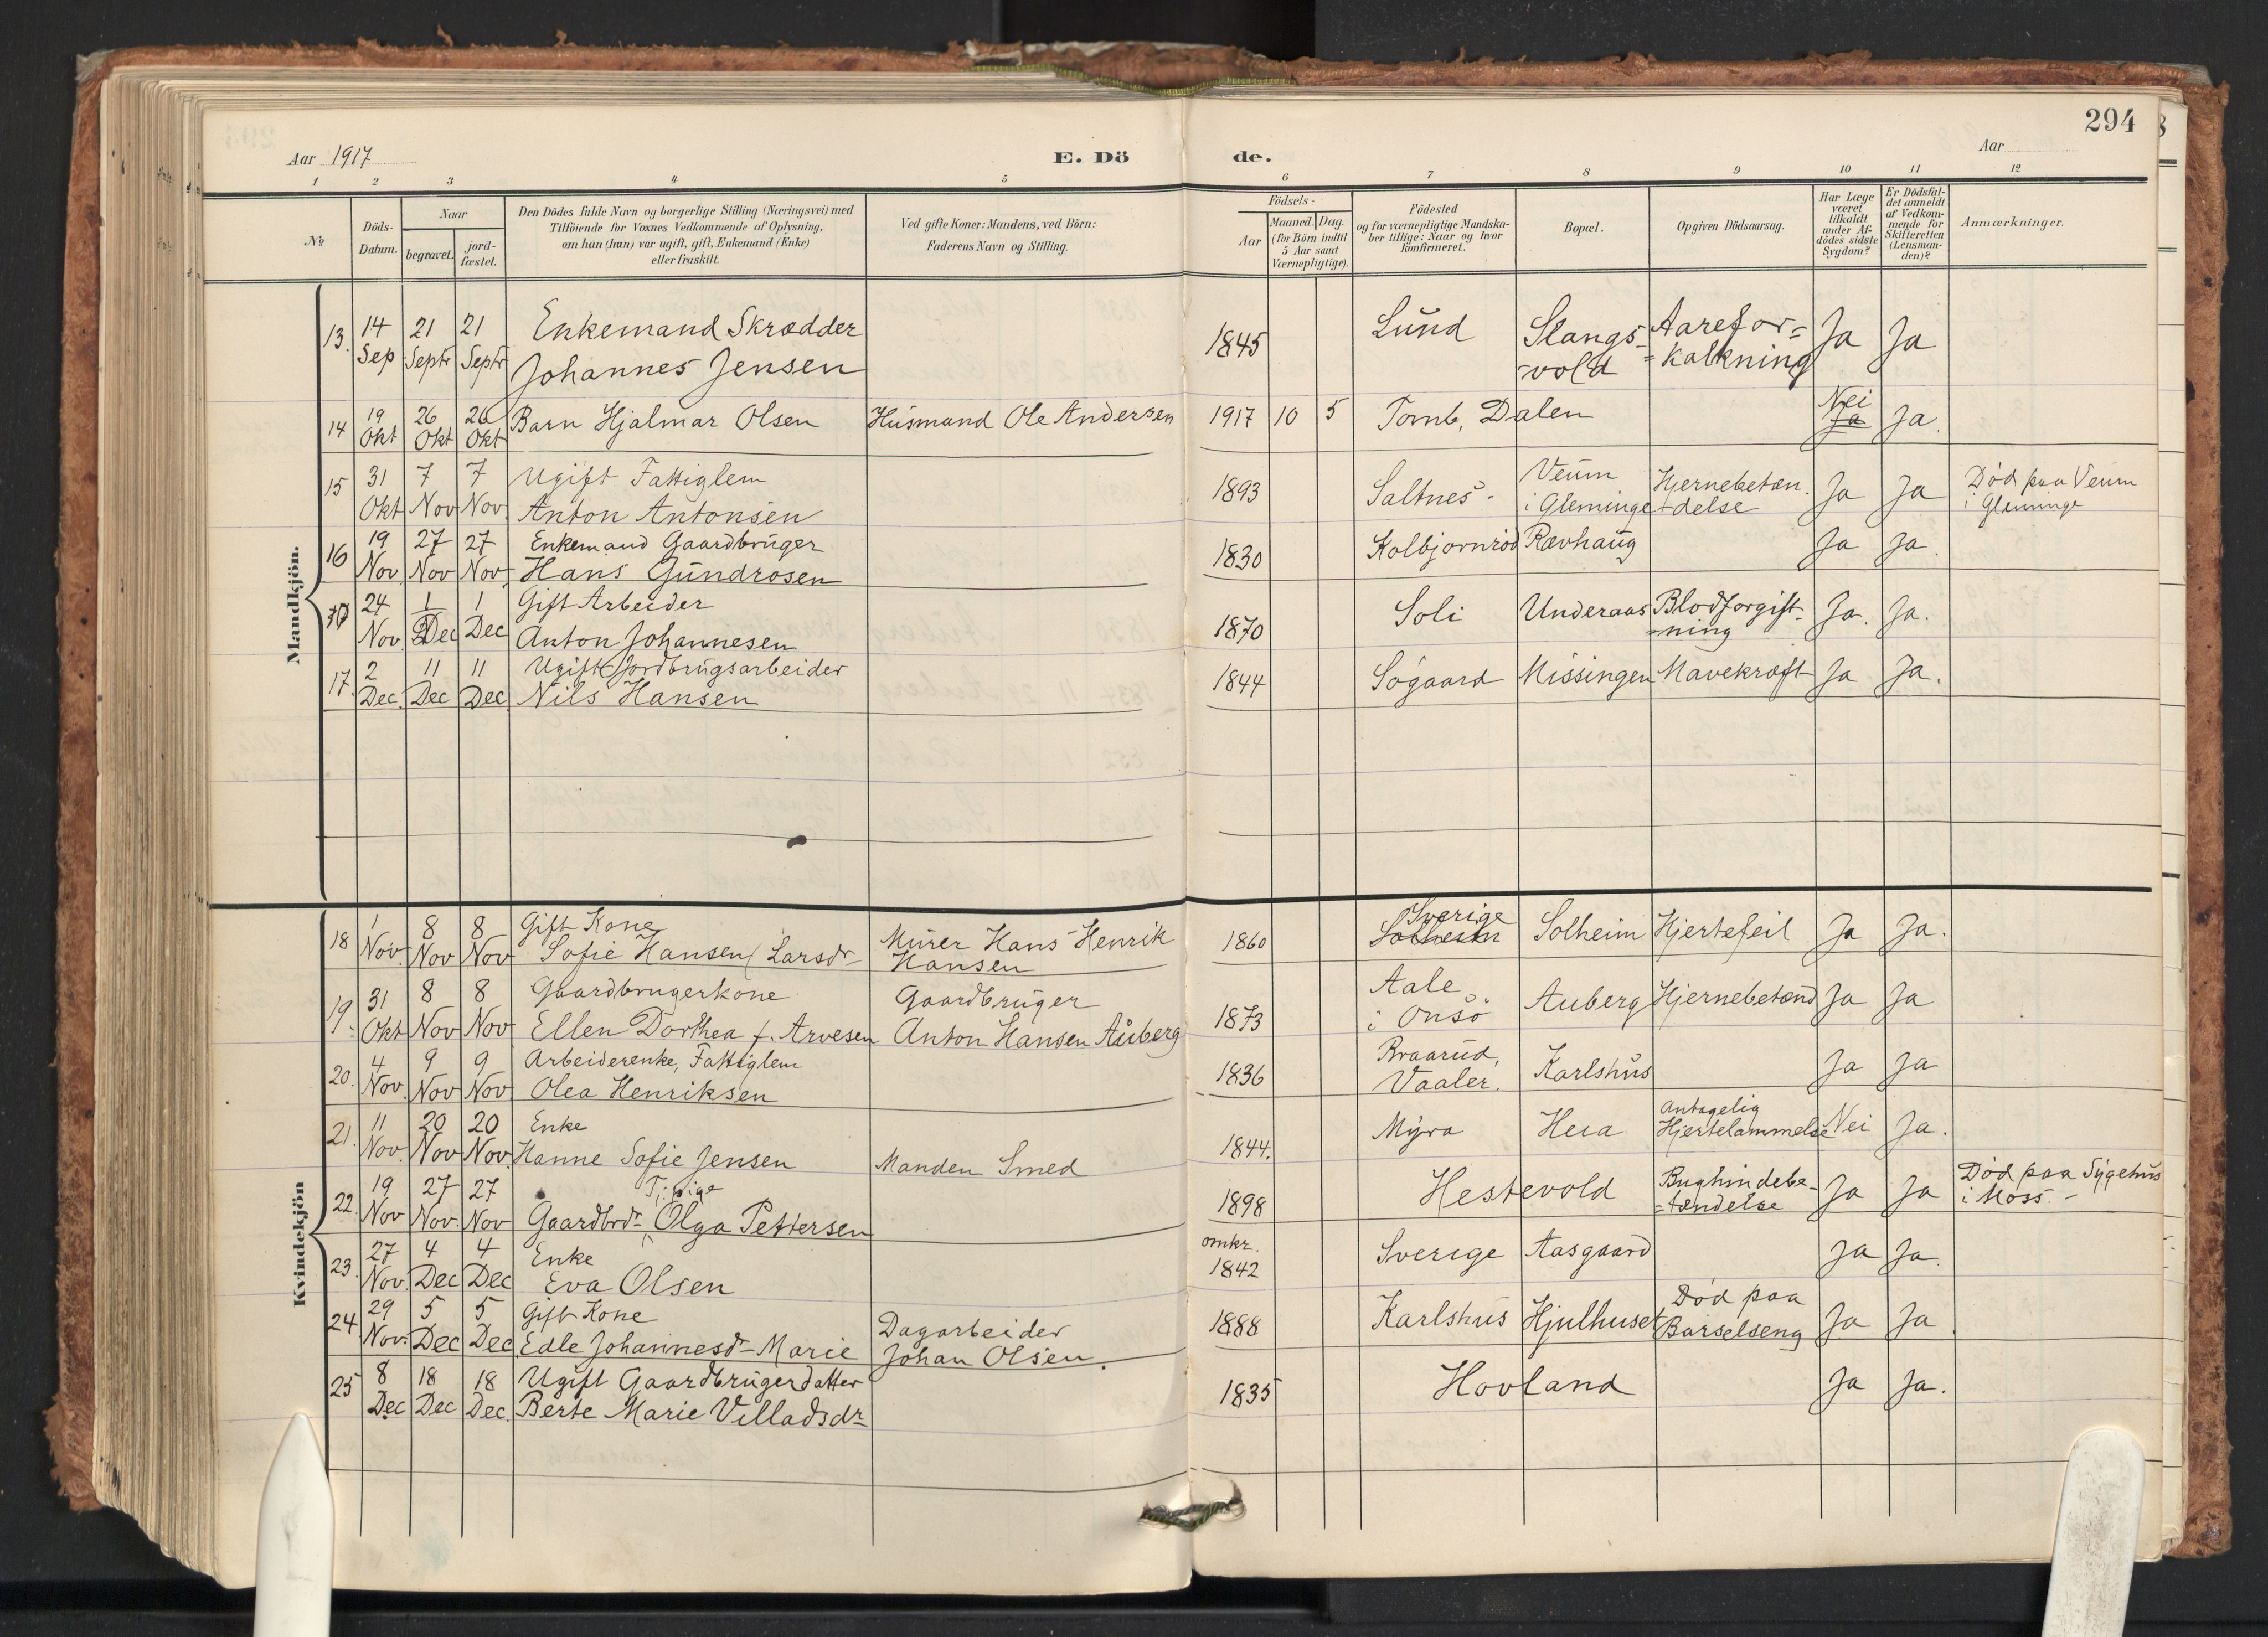 294
Aar 1917
E. Dö
de.
Aar
1 2 3 4 5 6 7 8 9 10 11 12
№
Döds-Datum.
Naar
begravet.
jord-fæstet.
Den Dödes fulde Navn og borgerlige Stilling (Næringsvei) med
Tilföiende for Voxnes Vedkommende af Oplysning,
om han (hun) var ugift, gift, Enkemand (Enke)
eller fraskilt.
Ved gifte Koner: Mandens, ved Börn:
Faderens Navn og Stilling.
Födsels-
Aar
Maaned. Dag.
(for Börn indtil
5 Aar samt
Værnepligtige).
Födested
og for værnepligtige Mandska-
ber tillige: Naar og hvor
konfirmeret.
Bopæl.
Opgiven Dödsaarsag.
Har Læge
været
tilkaldt
under Af-
dödes sidste
Sygdom?
Er Dödsfal-
det anmeldt
af Vedkom-
mende for
Skifteretten
(Lensman-
den)?
Anmærkninger.
Mandkjön.
13. 14 Sep 21 Septr 21 Septr Enkemand Skrædder
Johannes Jensen 1845 Lund Slangs-
-vold Aarefor=
=kalkning Ja Ja
14 19 Okt 26 Okt 26 Okt Barn Hjalmar Olsen Husmand Ole Andersen 1917 10 5 Tomb, Dalen Nei
Ja Ja.
15 31 Okt 7 Nov 7 Nov. Ugift Fattiglem
Anton Antonsen 1893 Saltnes - Veum
i Gleminge Hjernebetæn.
-delse Ja Ja Död paa Veum
i Gleminge
16 19 Nov 27 Nov 27 Nov. Enkemand Gaardbruger
Hans Gundrosen 1830 Kolbjornröd Rævhaug Ja Ja.
24 Nov. 1 Dec 1 Dec Gift Arbeider
Anton Johannesen 1870 Soli Underaas Blodforgift-
-ning Ja. Ja.
17. 2 Dec. 11 Dec 11 Dec. Ugift Jordbrugsarbeider
Nils Hansen 1844 Sögaard Missingen Mavekræft Ja Ja.
Kvindekjön
18 1 Nov. 8 Nov 8 Nov Gift Kone
Sofie Hansen Larsdr Murer Hans Henrik
Hansen 1860 Sverige
Solheim Solheim Hjertefeil Ja Ja.
19. 31 Okt 8 Nov 8 Nov Gaardbrugerkone
Ellen Dorthea f. Arvesen Gaardbruger
Anton Hansen Auberg 1873 Aale
i Onsö Auberg Hjernebetænd Ja Ja
20. 4 Nov. 9 Nov 9 Nov Arbeiderenke, Fattiglem
Olea Henriksen 1836 Braarud,
Vaaler. Karlshus Ja Ja
21. 11 Nov. 20 Nov 20 Nov. Enke
Hanne Sofie Jensen Manden Smed 1844. Myra Heia Antagelig
Hjertelammelse Nei Ja.
22. 19 Nov 27 Nov. 27 Nov Tj.pige
Gaardbrdr Olga Pettersen 1898 Hestevold Bughindebe-
=tændelse Ja Ja Död paa Sygehus
i Moss. -
23. 27 Nov. 4 Dec 4 Dec Enke
Eva Olsen omkr.
1842 Sverige Aasgaard Ja Ja.
24 29 Nov. 5 Dec 5 Dec Gift Kone
Edle Johannesdr Marie Dagarbeider
Johan Olsen. 1888 Karlshus Hjulhuset Död paa
Barselseng Ja Ja
25 8 Dec 18 Dec 18 Dec. Ugift Gaardbrugerdatter
Berte Marie Villadsdr 1835 Hovland Ja Ja.